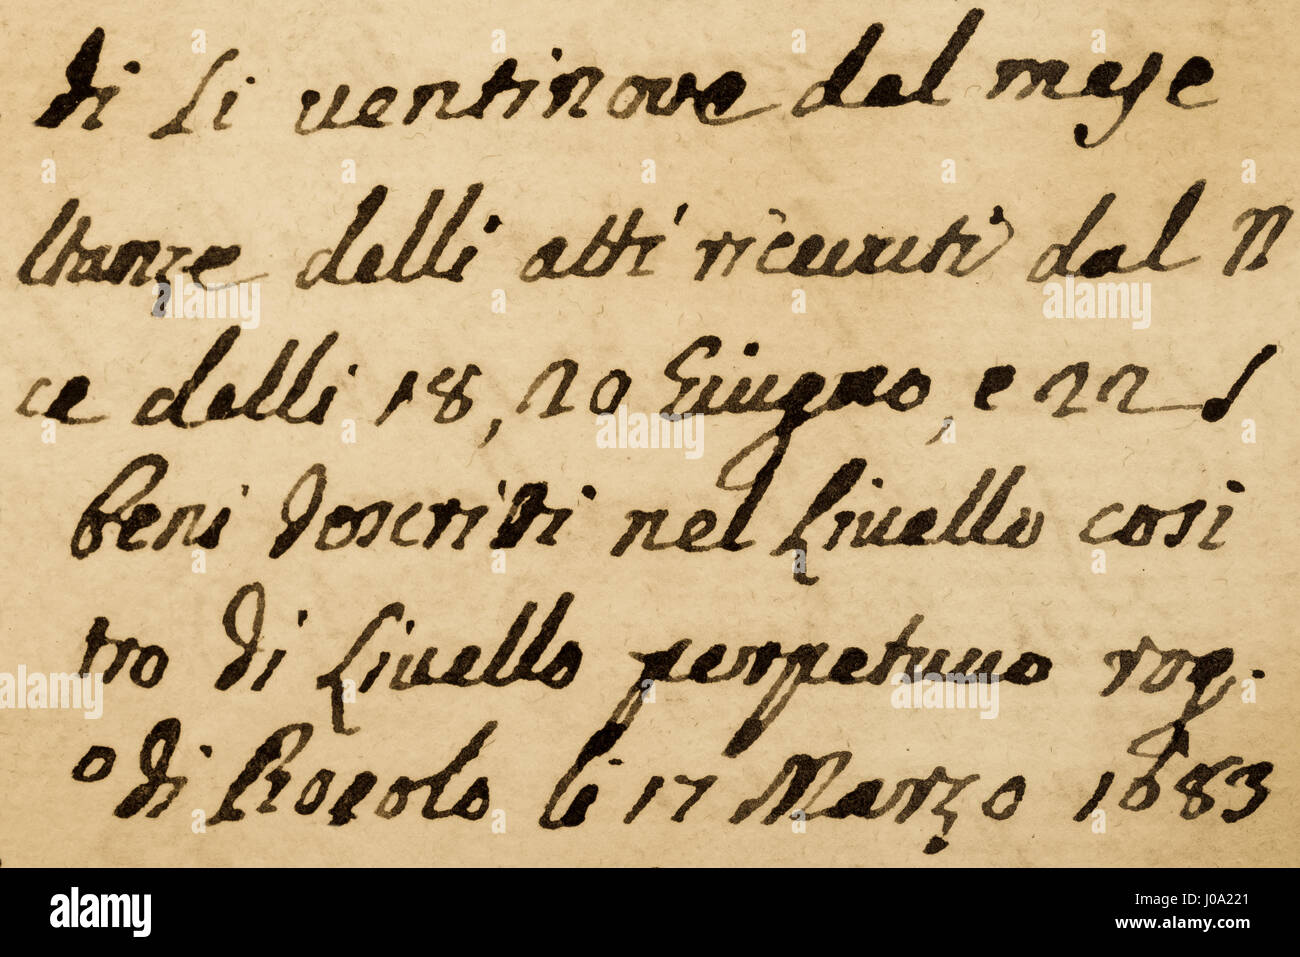 di li ventinove del mese
ltanze delli atti riceuuti dal N
ce delli 18, 20 Giugno, e 22
beni descritti nel Liuello cosi
tro di Liuello perpetuuo rog.
o di li 17 Marzo 1683
alamy
Image ID: J0A221
www.alamy.com